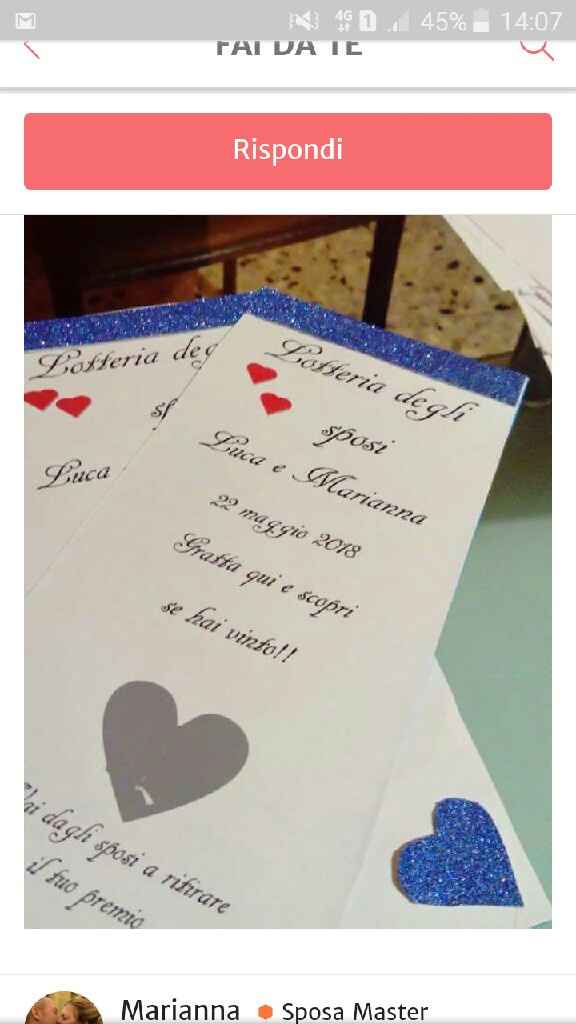 4G 1 45% 14:07
FAI DA TE
Rispondi
Lotteria degli
sposi
Luca e Marianna
22 maggio 2018
Gratta qui e scopri
se hai vinto!!
Vai dagli sposi a ritirare
il tuo premio
Lotteria deg
Luca
Marianna Sposa Master